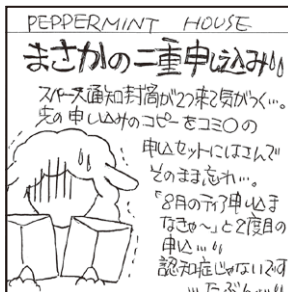 PEPPERMINT HOUSE
まさかの二重申し込み
スペース通知封筒が2つ来て気がつく…。
先の申し込みのコピーをコミ〇の
申込セットにはさんで
そのまま忘れ…。
「8月のティア申し込ま
なきゃ〜」と2度目の
申込…
認知症じゃないです
…たぶん…